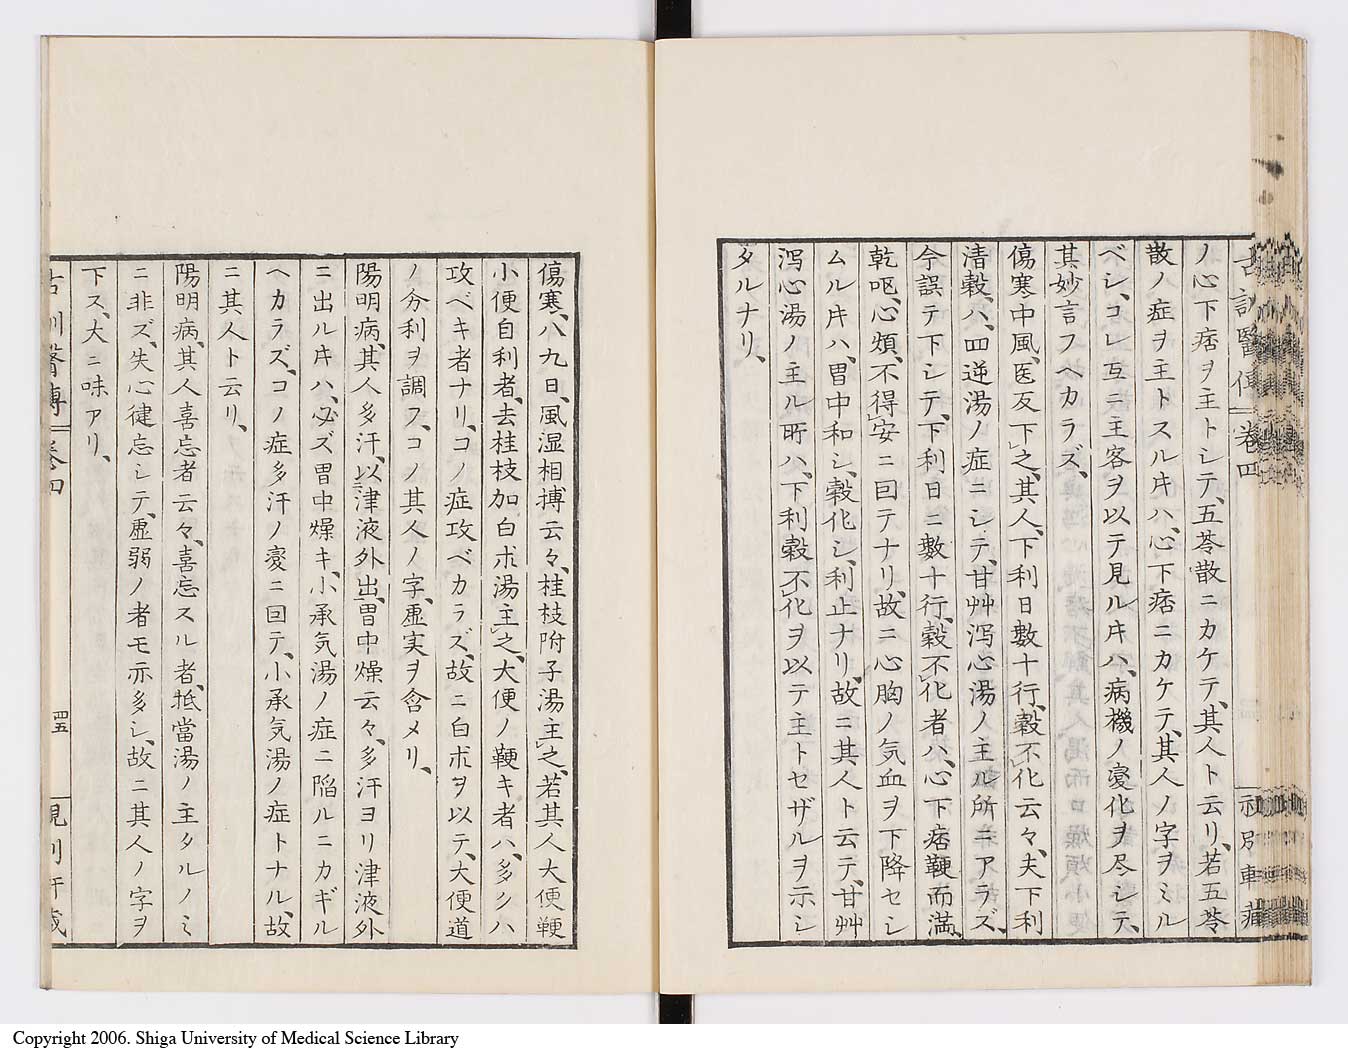 古訓醫傳 卷四
ノ心下痞ヲ主トシテ、五苓散ニカケテ、其人ト云リ、若五苓
散ノ症ヲ主トスル𪜈ハ、心下痞ニカケテ、其人ノ字ヲミル
ベシ、コレ互ニ主客ヲ以テ見ル𪜈ハ、病機ノ変化ヲ尽シテ、
其妙言フヘカラズ、
傷寒中風、医反下之、其人、下利日数十行、穀不化云々、夫下利
清穀ハ、四逆湯ノ症ニシテ、甘艸瀉心湯ノ主ル所ニアラズ、
今誤テ下シテ、下利日ニ數十行、穀不化者ハ、心下痞鞕而満、
乾呕、心煩、不得安ニ回テナリ、故ニ心胸ノ気血ヲ下降セシ
ムル𪜈ハ、胃中和シ、穀化シ、利止ナリ、故ニ其人ト云テ、甘艸
瀉心湯ノ主ル所ハ、下利穀不化ヲ以テ主トセザルヲ示シ
タルナリ、
傷寒、八九日、風湿相搏云々、桂枝附子湯主之、若其人大便鞕
小便自利者、去桂枝加白朮湯主之、大便ノ鞕キ者ハ、多クハ
攻ベキ者ナリ、コノ症攻ベカラズ、故ニ白朮ヲ以テ、大便道
ノ分利ヲ調フ、コノ其人ノ字、虚実ヲ含メリ、
陽明病、其人多汗、以津液外出、胃中燥云々、多汗ヨリ津液外
ニ出ル𪜈ハ、必ズ胃中燥キ、小承気湯ノ症ニ陥ルニカギル
ヘカラズ、コノ症多汗ノ変ニ回テ、小承気湯ノ症トナル、故
ニ其人ト云リ、
陽明病、其人喜忘者云々、喜忘スル者、抵當湯ノ主タルノミ
ニ非ズ、失心健忘シテ、虚弱ノ者モ亦多シ、故ニ其人ノ字ヲ
下ス、大ニ味アリ、
古訓醫傳 卷四 四五